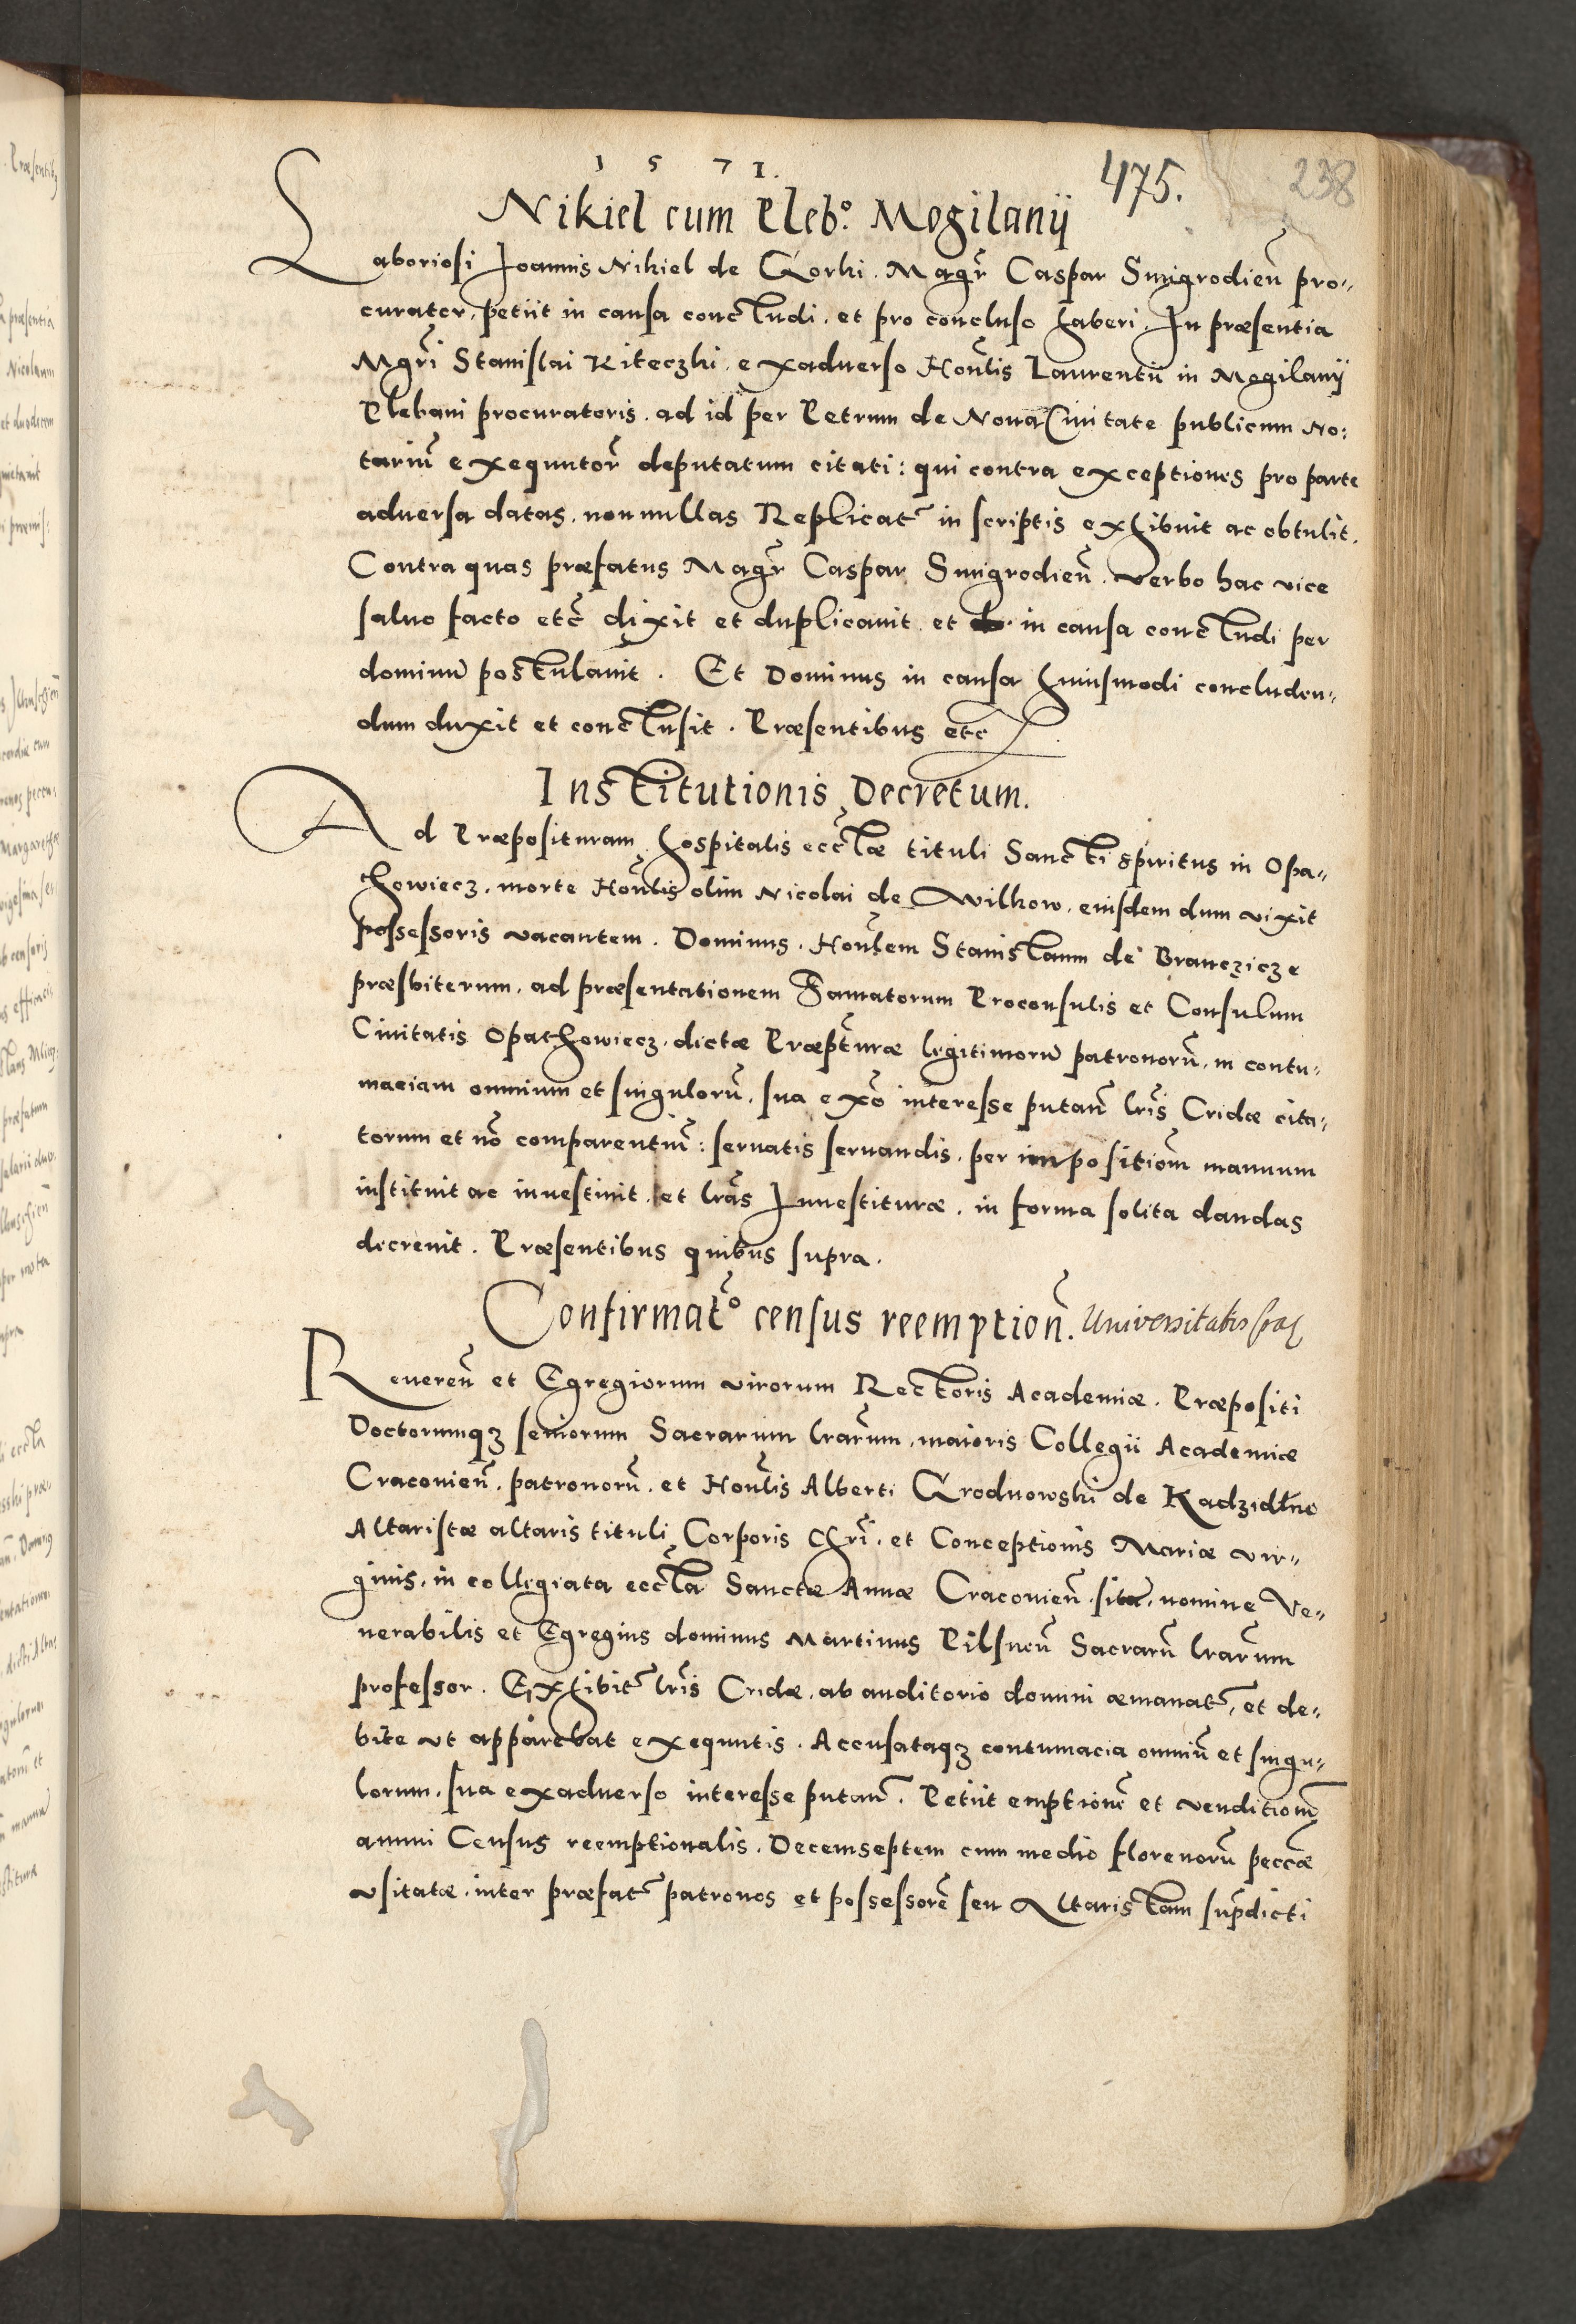 1 5 7 1.
475.
238
Nikiel cum Pleb.º Mogilanÿ
Laboriosi Joannis Nikiel de Gorki. Magr̃ Caspar Smigrodien̄ pro-
curator, petiit in causa concludi, et pro concluso haberi. In præsentia
Mgr̃i Stanislai Kiteczki, exaduerso Hon̄lis Laurentii in Mogilanÿ
Plebani procuratoris, ad id per Petrum de Noua Ciuitate publicum No:
tariū exequutor̄ deputatum citati: qui contra exceptiones pro parte
aduersa datas, nonnullas Replicat̃ in scriptis exhibuit ac obtulit.
Contra quas præfatus Magr̃ Caspar Smigrodien̄. verbo hac vice
saluo facto etc̄ dixit et duplicauit et in causa concludi per
dominū postulauit. Et Dominus in causa huiusmodi concluden-
dum duxit et conclusit. Præsentibus etc
Institutionis Decretum.
Ad Præposituram hospitalis eccl̄æ tituli Sancti spiritus in Opa-
thowiecz, morte Hon̄lis olim Nicolai de Wilkow, eiusdem dum vixit
possessoris vacantem. Dominus. Hon̄lem Stanislaum de Branczicze
præsbiterum, ad præsentationem Famatorum Proconsulis et Consulum
Ciuitatis Opathowiecz, dictæ Præpt̄uræ legitimorū patronorū, in contu-
maciam omnium et singulorū, sua ex̃o interesse putan̄ lr̃is Cridæ cita-
torum et nō comparentiū: seruatis seruandis, per impositiom̄ manuum
instituit ac inuestiuit, et lr̃as Inuestituræ, in forma solita dandas
decreuit. Præsentibus quibus supra.
Confirmat̃º census reemption̄. Universitatis
Reueren̄ et Egregiorum virorum Rectoris Academiæ. Præpositi
Doctorumqꝫ seniorum Sacrarum lr̃arum, maioris Collegii Academiæ
Cracouien̄. patronorū. et Hon̄lis Alberti Grodnowski de Kadzidlno
Altaristæ altaris tituli Corporis Chr̃i. et Conceptionis Mariæ vir-
ginis, in collegiata eccl̄a Sanctæ Annæ Cracouien̄. sita, nomine Ve-
nerabilis et Egregius dominus Martinus Pilsnen̄ Sacrarū lr̃arum
professor. Exhibit̃ lr̃is Cridæ, ab auditorio domini æmanat̃, et de-
bite vt apparebat exequutis. Accusataqꝫ contumacia omniū et singu-
lorum, sua exaduerso interesse putan̄. Petiit emptionē et venditiom̄
annui Census reemptionalis. Decemseptem cum medio florenorū pecc̄æ
vsitatæ, inter præfat̃ patronos et possessorē seu Altaristam sup̄dicti